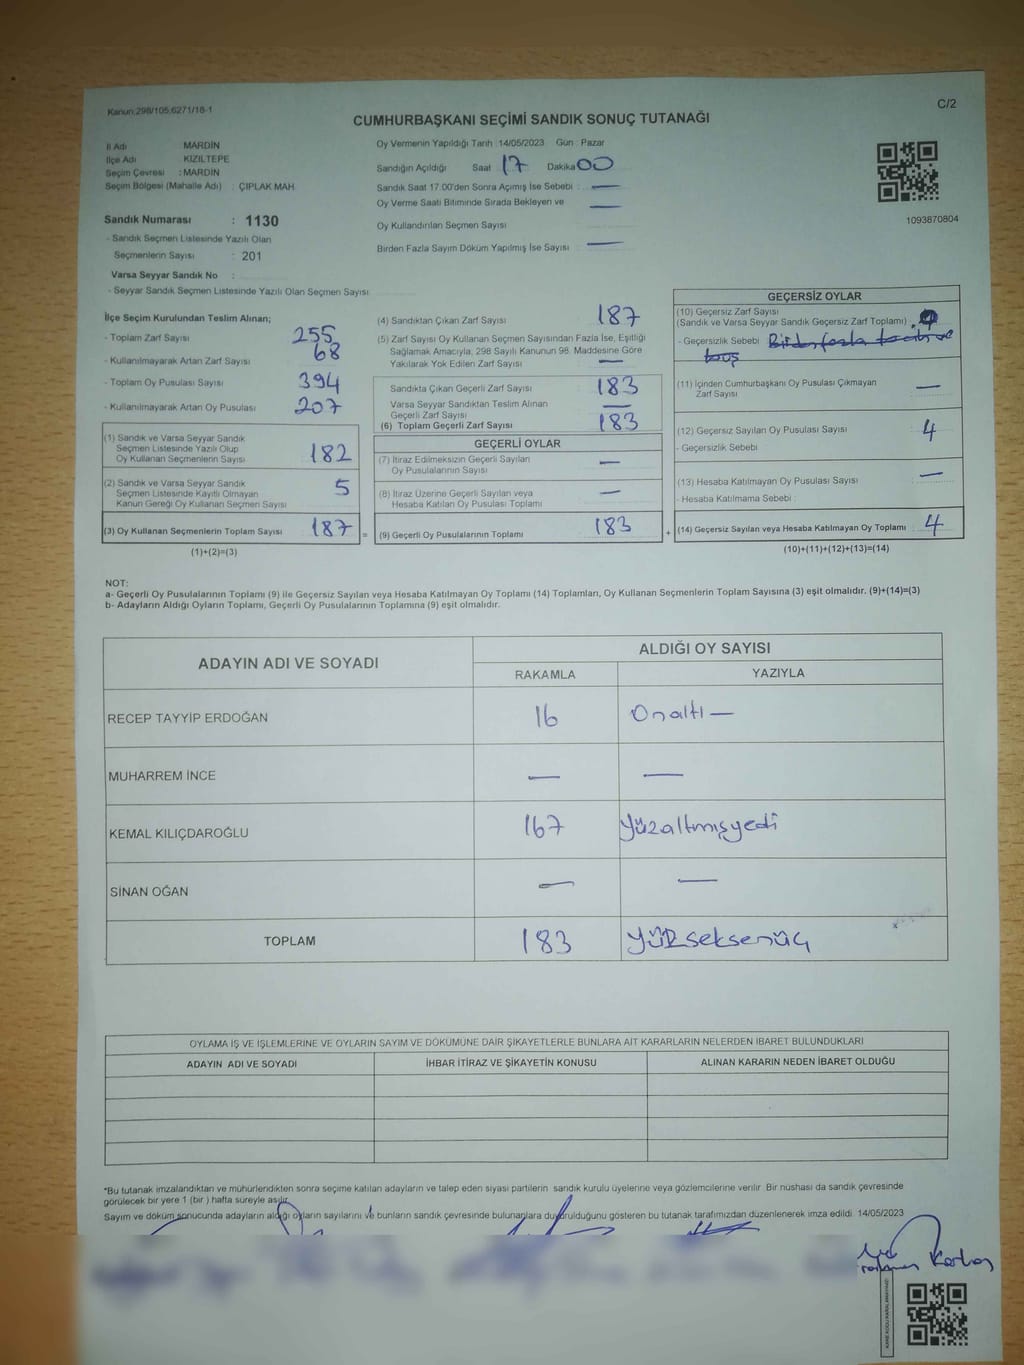 Kanun:298/105,6271/18-1
C/2
CUMHURBAŞKANI SEÇİMİ SANDIK SONUÇ TUTANAĞI
İl Adı MARDİN
İlçe Adı KIZILTEPE
Seçim Çevresi : MARDİN
Seçim Bölgesi (Mahalle Adı) : ÇIPLAK MAH
Sandık Numarası : 1130
- Sandık Seçmen Listesinde Yazılı Olan
Seçmenlerin Sayısı : 201
Varsa Seyyar Sandık No :
- Seyyar Sandık Seçmen Listesinde Yazılı Olan Seçmen Sayısı
Oy Vermenin Yapıldığı Tarih :14/05/2023 Gün : Pazar
Sandığın Açıldığı Saat 17 Dakika 00
Sandık Saat 17.00'den Sonra Açımış İse Sebebi : —
Oy Verme Saati Bitiminde Sırada Bekleyen ve —
Oy Kullandırılan Seçmen Sayısı
Birden Fazla Sayım Döküm Yapılmış İse Sayısı —
1093870804
İlçe Seçim Kurulundan Teslim Alınan;
- Toplam Zarf Sayısı 255
- Kullanılmayarak Artan Zarf Sayısı 68
- Toplam Oy Pusulası Sayısı 394
- Kullanılmayarak Artan Oy Pusulası 207
(1) Sandık ve Varsa Seyyar Sandık
Seçmen Listesinde Yazılı Olup
Oy Kullanan Seçmenlerin Sayısı 182
(2) Sandık ve Varsa Seyyar Sandık
Seçmen Listesinde Kayıtlı Olmayan
Kanun Gereği Oy Kullanan Seçmen Sayısı 5
(3) Oy Kullanan Seçmenlerin Toplam Sayısı 187 =
(1)+(2)=(3)
(4) Sandıktan Çıkan Zarf Sayısı 187
(5) Zarf Sayısı Oy Kullanan Seçmen Sayısından Fazla İse, Eşitliği
Sağlamak Amacıyla, 298 Sayılı Kanunun 98. Maddesine Göre
Yakılarak Yok Edilen Zarf Sayısı —
Sandıkta Çıkan Geçerli Zarf Sayısı 183
Varsa Seyyar Sandıktan Teslim Alınan
Geçerli Zarf Sayısı —
(6) Toplam Geçerli Zarf Sayısı 183
GEÇERLİ OYLAR
(7) İtiraz Edilmeksizin Geçerli Sayılan
Oy Pusulalarının Sayısı —
(8) İtiraz Üzerine Geçerli Sayılan veya
Hesaba Katılan Oy Pusulası Toplamı —
(9) Geçerli Oy Pusulalarının Toplamı 183 +
GEÇERSİZ OYLAR
(10) Geçersiz Zarf Sayısı
(Sandık ve Varsa Seyyar Sandık Geçersiz Zarf Toplamı)
- Geçersizlik Sebebi Birden fazla
boş
(11) İçinden Cumhurbaşkanı Oy Pusulası Çıkmayan
Zarf Sayısı —
(12) Geçersiz Sayılan Oy Pusulası Sayısı 4
- Geçersizlik Sebebi
(13) Hesaba Katılmayan Oy Pusulası Sayısı —
- Hesaba Katılmama Sebebi :
(14) Geçersiz Sayılan veya Hesaba Katılmayan Oy Toplamı 4
(10)+(11)+(12)+(13)=(14)
NOT:
a- Geçerli Oy Pusulalarının Toplamı (9) ile Geçersiz Sayılan veya Hesaba Katılmayan Oy Toplamı (14) Toplamları, Oy Kullanan Seçmenlerin Toplam Sayısına (3) eşit olmalıdır. (9)+(14)=(3)
b- Adayların Aldığı Oyların Toplamı, Geçerli Oy Pusulalarının Toplamına (9) eşit olmalıdır.
ADAYIN ADI VE SOYADI ALDIĞI OY SAYISI
RAKAMLA YAZIYLA
RECEP TAYYİP ERDOĞAN 16 Onaltı —
MUHARREM İNCE — —
KEMAL KILIÇDAROĞLU 167 Yüzaltmışyedi
SİNAN OĞAN — —
TOPLAM 183 Yüzseksenüç
OYLAMA İŞ VE İŞLEMLERİNE VE OYLARIN SAYIM VE DÖKÜMÜNE DAİR ŞİKAYETLERLE BUNLARA AİT KARARLARIN NELERDEN İBARET BULUNDUKLARI
ADAYIN ADI VE SOYADI İHBAR İTİRAZ VE ŞİKAYETİN KONUSU ALINAN KARARIN NEDEN İBARET OLDUĞU
*Bu tutanak imzalandıktan ve mühürlendikten sonra seçime katılan adayların ve talep eden siyasi partilerin sandık kurulu üyelerine veya gözlemcilerine verilir. Bir nüshası da sandık çevresinde
görülecek bir yere 1 (bir ) hafta süreyle asılır.
Sayım ve döküm sonucunda adayların aldığı oyların sayılarını ve bunların sandık çevresinde bulunanlara duyurulduğunu gösteren bu tutanak tarafımızdan düzenlenerek imza edildi. 14/05/2023